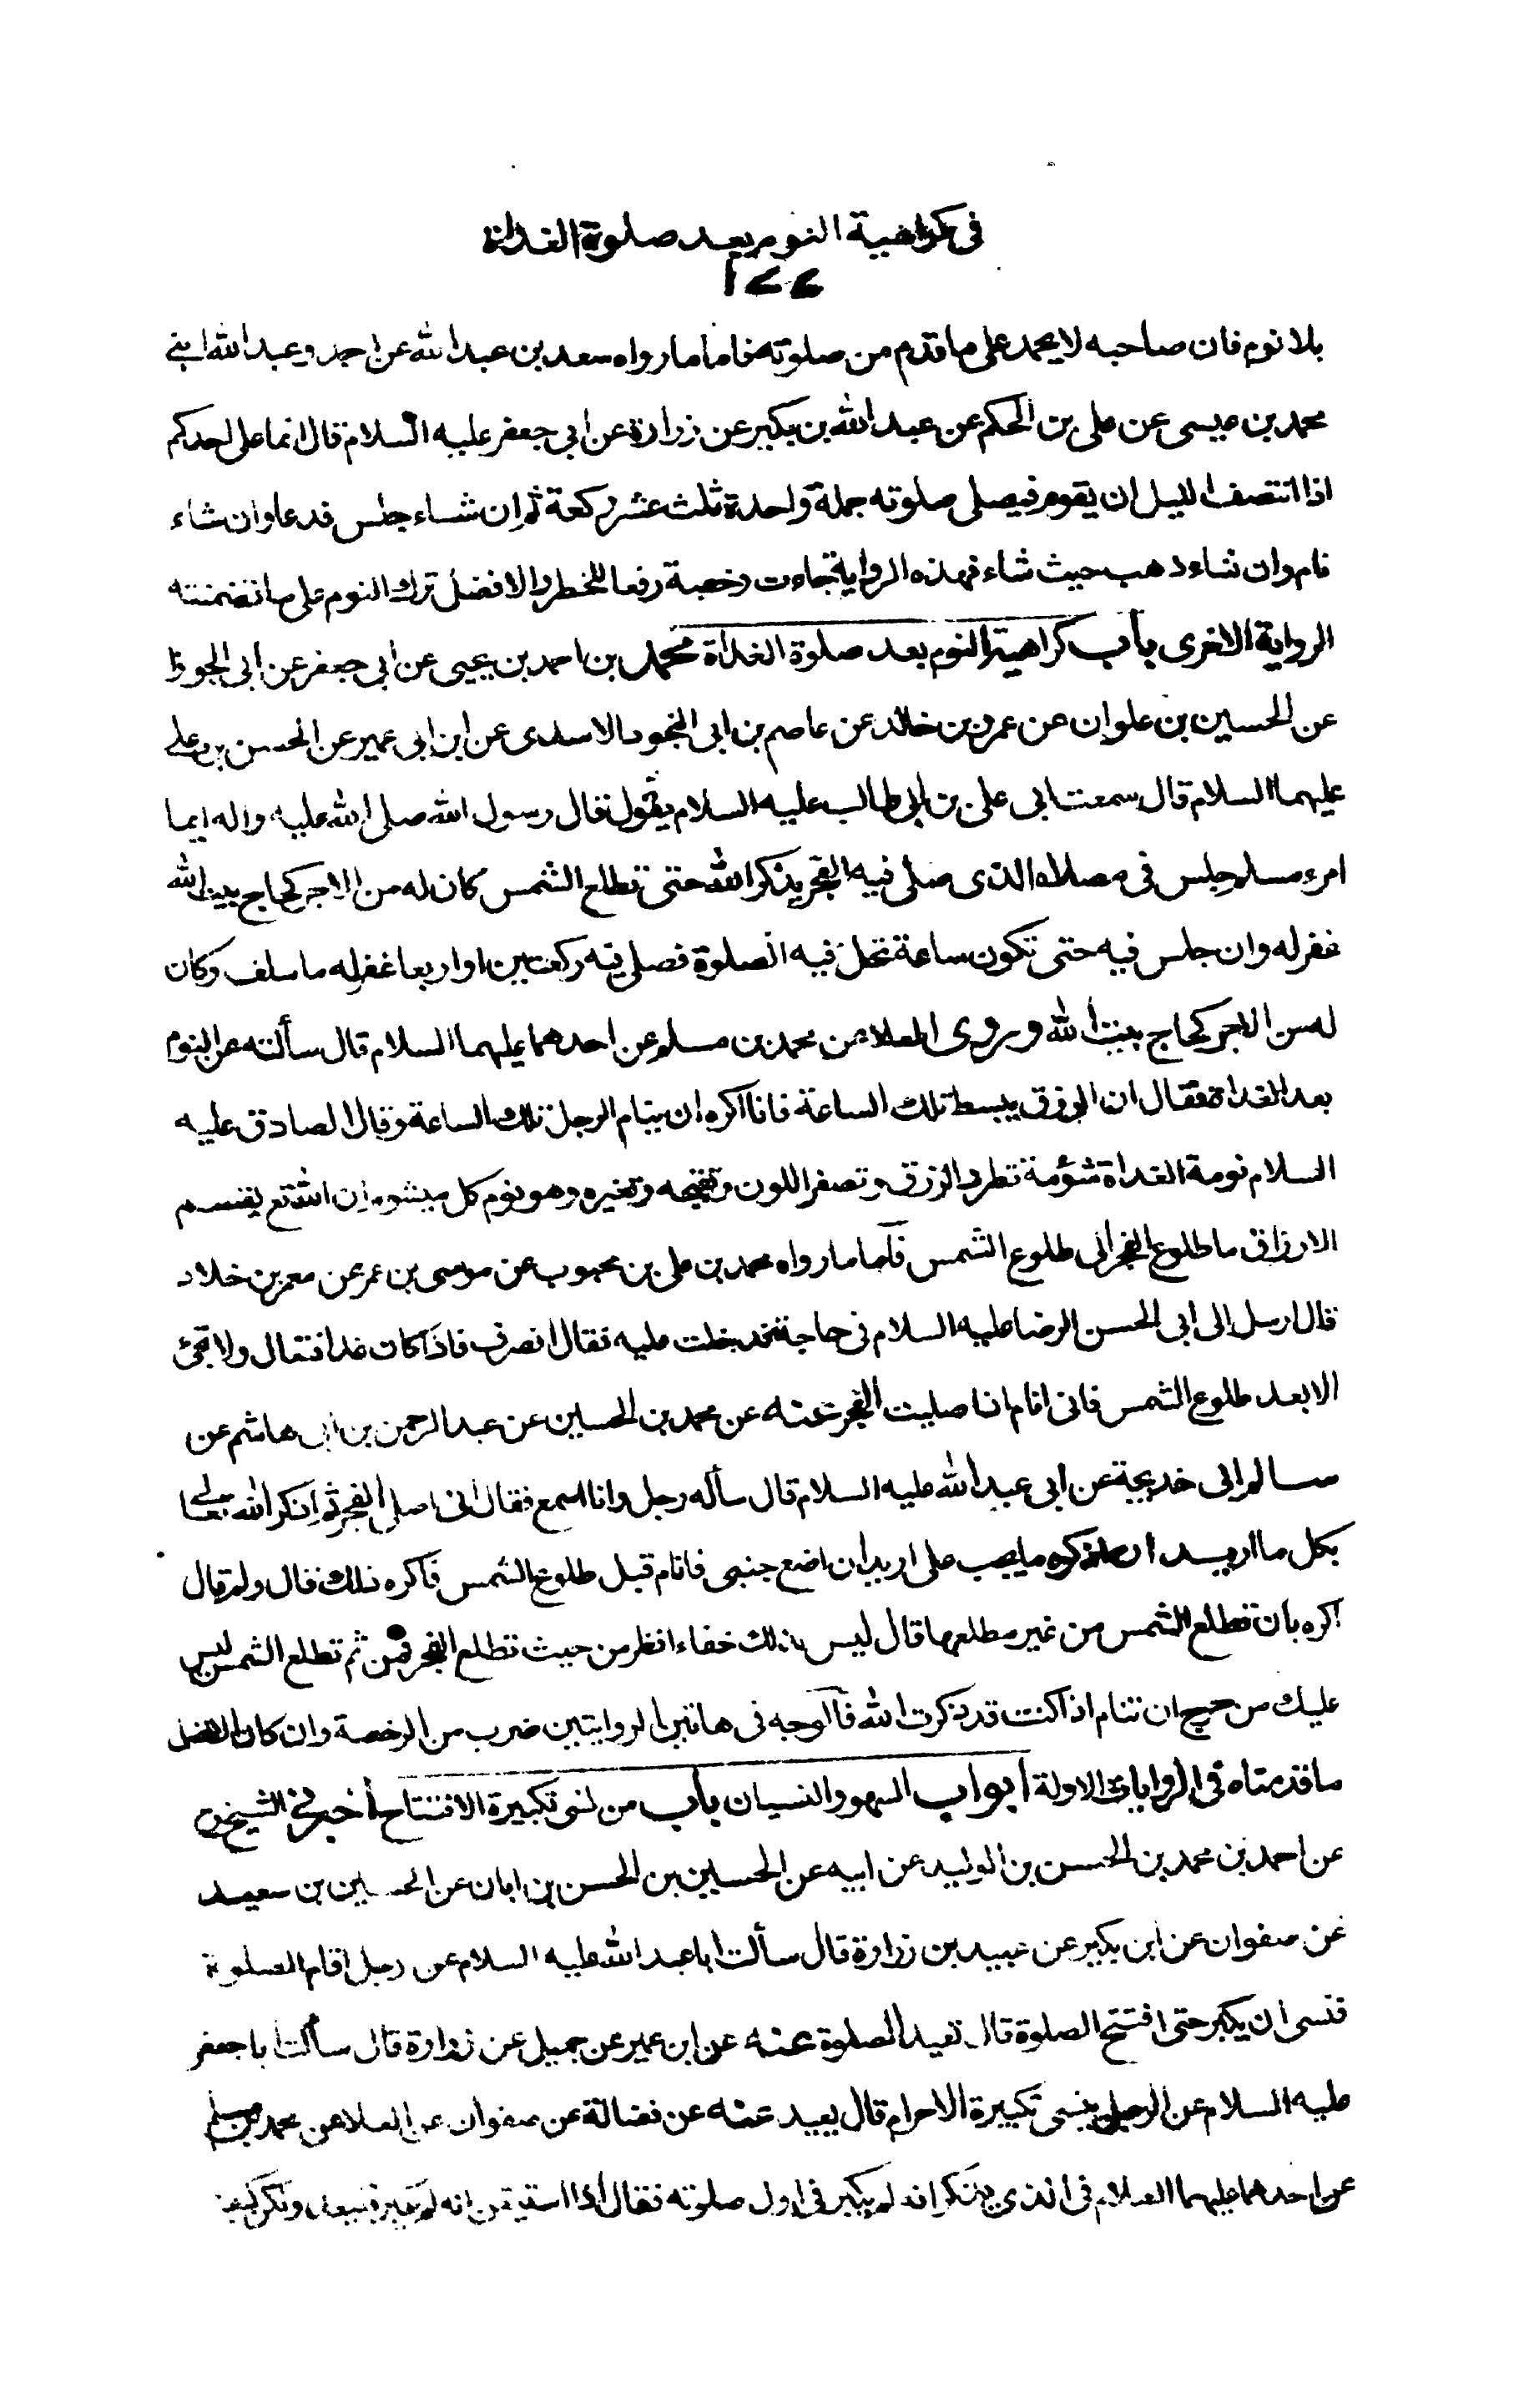 في كراهية النوم بعد صلوة الغداة
١٧٧
بلا نوم فان صاحبه لا يحمد على ما قدم من صلوته فاما ما رواه سعد بن عبد الله عن احمد وعبد الله ابني
محمد بن عيسى عن على بن الحكم عن عبد الله بن بكير عن زرارة عن ابى جعفر عليه السلام قال انما على احدكم
اذا انتصف الليل ان يقوم فيصلى صلوته جملة واحدة ثلث عشر ركعة ثم ان شاء جلس فدعا وان شاء
نام وان شاء ذهب حيث شاء فهذه الرواية جاءت رخصة رفعا للخطر والافضل ترك النوم على ما تضمنته
الرواية الاخرى باب كراهية النوم بعد صلوة الغداة محمد بن احمد بن يحيى عن ابى جعفر عن ابى الجوزا
عن الحسين بن علوان عن عمرو بن خالد عن عاصم بن ابى النجود الاسدى عن ابن ابى عمير عن الحسن بن على
عليهما السلام قال سمعت ابى على بن ابى طالب عليه السلام يقول قال رسول الله صلى الله عليه واله ايما
امرء مسلم جلس في مصلاه الذى صلى فيه الفجر يذكر الله حتى تطلع الشمس كان له من الاجر كحاج بيت الله
غفر له وان جلس فيه حتى تكون ساعة تحل فيه الصلوة فصلى فيه ركعتين او اربعا غفر له ما سلف وكان
له من الاجر كحاج بيت الله وروى العلاء عن محمد بن مسلم عن احدهما عليهما السلام قال سألته عن النوم
بعد الغداة فقال ان الرزق يبسط تلك الساعة فانا اكره ان ينام الرجل تلك الساعة وقال الصادق عليه
السلام نومة الغداة شؤمة تطرد الرزق وتصفر اللون وتقبحه وتغيره وهو نوم كل ميشوم ان الله تع يقسم
الارزاق ما طلوع الفجر الى طلوع الشمس فاما ما رواه محمد بن على بن محبوب عن موسى بن عمر عن معمر بن خلاد
قال ارسل الى ابى الحسن الرضا عليه السلام في حاجة فدخلت عليه فقال انصرف فاذا كان غدا فتعال ولا تجئ
الا بعد طلوع الشمس فانى انام اذا صليت الفجر عنه عن محمد بن الحسين عن عبد الرحمن بن ابى هاشم عن
سالم ابى خديجة عن ابى عبد الله عليه السلام قال سأله رجل وانا اسمع فقال انى اصلى الفجر ثم اذكر الله تعالى
بكل ما اريد ان اذكره مما يجب على اريد ان اضع جنبى فانام قبل طلوع الشمس فاكره ذلك قال ولم قال
اكره بان تطلع الشمس من غير مطلعها قال ليس بذلك خفاء انظر من حيث تطلع الفجر فمن ثم تطلع الشمس ليس
عليك من حرج ان تنام اذا كنت قد ذكرت الله فالوجه في هاتين الروايتين ضرب من الرخصة وان كان الافضل
ما قدمناه في الروايات الاولة ابواب السهو والنسيان باب من نسى تكبيرة الافتتاح اخبرني الشيخ ره
عن احمد بن محمد بن الحسن بن الوليد عن ابيه عن الحسين بن الحسن بن ابان عن الحسين بن سعيد
عن صفوان عن ابن بكير عن عبيد بن زرارة قال سألت ابا عبد الله عليه السلام عن رجل اقام الصلوة
فنسى ان يكبر حتى افتتح الصلوة قال تعيد الصلوة عنه عن ابن عمير عن جميل عن زرارة قال سألت ابا جعفر
عليه السلام عن الرجل ينسى تكبيرة الاحرام قال يعيد عنه عن فضالة عن صفوان عن العلا عن محمد بن مسلم
عن احدهما عليهما السلام في الذى يذكر انه لم يكبر في اول صلوته فقال اذا استيقن انه لم يكبر فليعد ولكن كيف